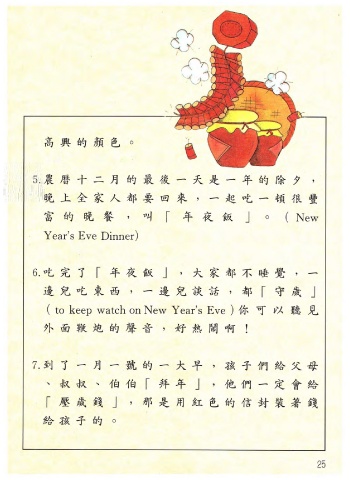 高興的顏色。
5.農曆十二月的最後一天是一年的除夕，
晚上全家人都要回來，一起吃一頓很豐
富的晚餐，叫「年夜飯」。(New
Year's Eve Dinner)
6.吃完了「年夜飯」，大家都不睡覺，一
邊兒吃東西，一邊兒談話，都「守歲」
(to keep watch on New Year's Eve)你可以聽見
外面鞭炮的聲音，好熱鬧啊！
7.到了一月一號的一大早，孩子們給父母
、叔叔、伯伯「拜年」，他們一定會給
「壓歲錢」，那是用紅色的信封裝著錢
給孩子的。
25